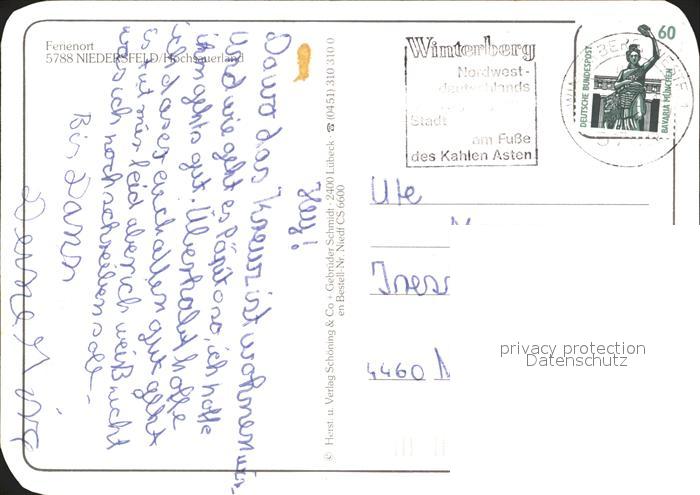 Ferienort
5788 NIEDERSFELD/Hochsauerland
Hey!
Da wo das Kreuz ist wohnen wir.
Und wie geht es Päpito so, ich hoffe
ihm geht's gut. Überhaubt hoffe
ich das es euch allen gut geht
Es tut mir leid aber ich weiß nicht
was ich noch schreiben soll.
Bis Dann
© Herst. u. Verlag Schöning & Co + Gebrüder Schmidt · 2400 Lübeck ☎ (0451) 310 310 0
en Bestell-Nr. Niedf CS 6600
Winterberg
Nordwest-
deutschlands
Stadt
am Fuße
des Kahlen Asten
60
DEUTSCHE BUNDESPOST
BAVARIA MÜNCHEN
Ute
4460
privacy protection
Datenschutz